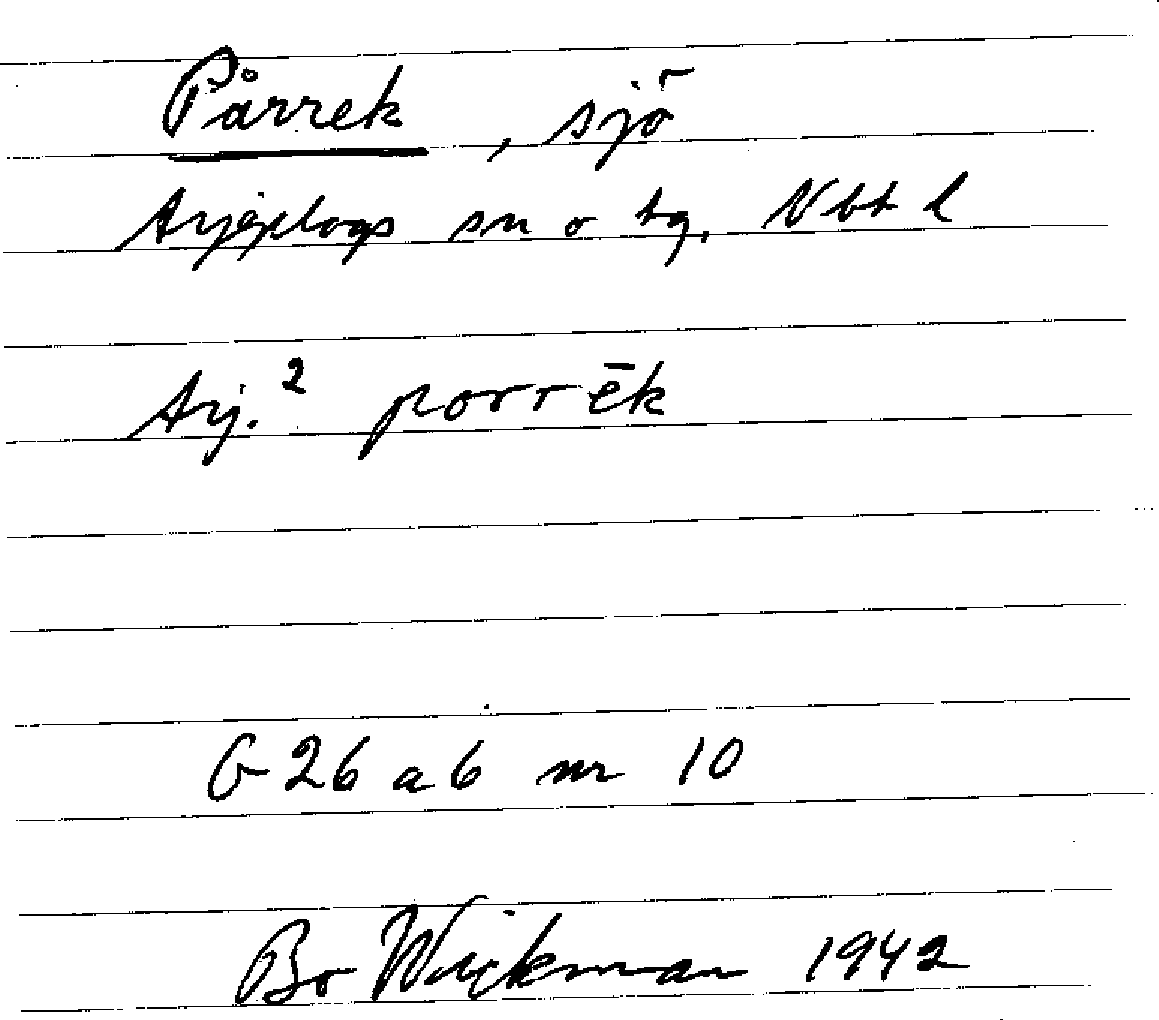 Pårrek, sjö
Arjeplogs sn o tg. Nbt l
Arj.² porrēk
G 26 a 6 nr 10
Bo Wickman 1942